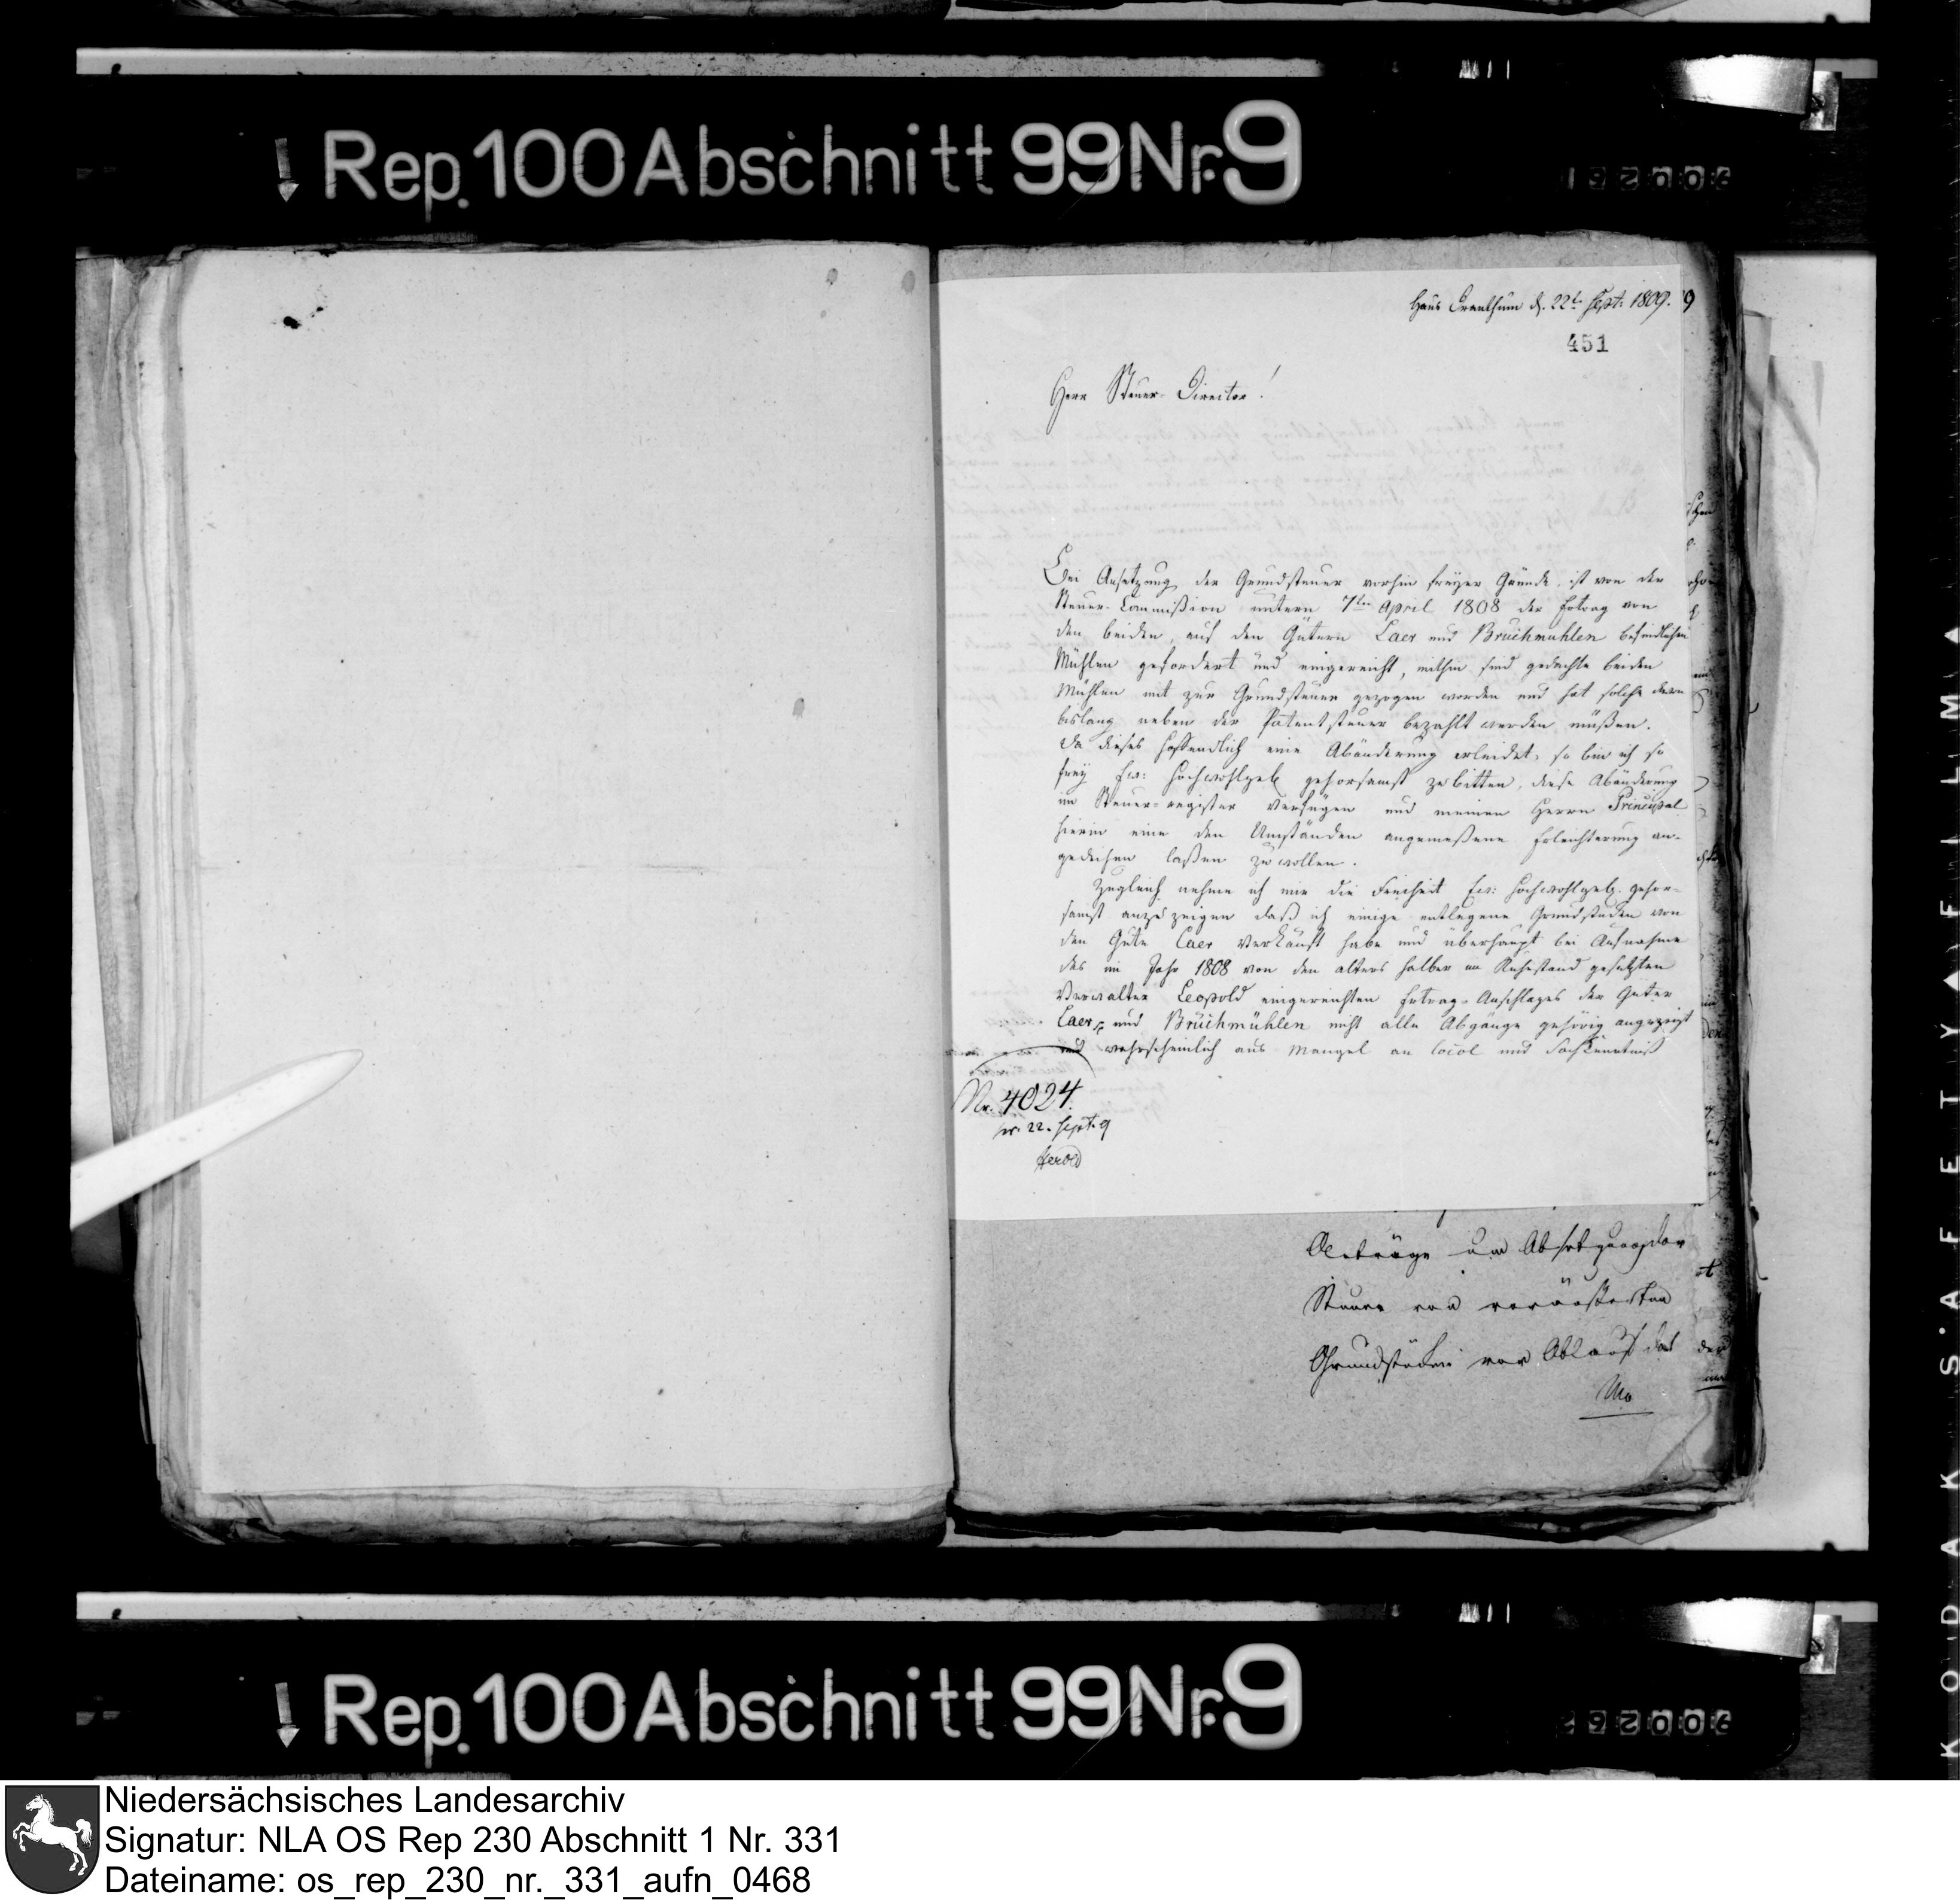 Rep. 100 Abschnitt 99 Nr. 9
Haus d. 22t. Sept: 1809.
451
Herr Steuer-Director!
Bei Ansetzung der Grundsteuer vorhin freyer Gründe, ist von der
Steuer-Commißion untern 7ten April 1808 der Ertrag von
den beiden, auf den Gütern Laer und Bruchmuhlen befindlichen
Mühlen gefordert und eingereicht, mithin sind gedachte beiden
Mühlen mit zur Grundsteuer gezogen worden und hat solche denn
bislang neben der Patentsteuer bezahlt werden müßen.
Da dieses hoffendlich eine Abänderung erleidet, so bin ich so
frey Ew: Hochwohlgeb gehorsamst zu bitten, diese Abänderung
im Steuer-register verfügen und meinen Herrn Principal
hierin eine den Umständen angemeßene Erleichterung an-
gedeihen laßen zu wollen.
Zugleich nehme ich mir die Freiheit Ew: Hochwohlgeb. gehor-
samst anzuzeigen daß ich einige entlegene Grundstücken von
den Gute Laer verkauft habe und überhaupt bei Aufnahme
des im Jahr 1808 von den alters halber in Ruhestand gesetzten
Verwalter Leopold eingereichten Ertrag-Anschlages der Güter
Laer und Bruchmühlen nicht alle Abgänge gehörig angezeigt
und wahrscheinlich aus Mangel an local und Sachkenntniß
Nr. 4024.
pr. 22. Sept. 9
Herold
Anträge um Absetzung der
Steuer von veräußerten
Grundstücken vor Ablauf des
Rep. 100 Abschnitt 99 Nr. 9
KODAK SAFETY FILM
Niedersächsisches Landesarchiv
Signatur: NLA OS Rep 230 Abschnitt 1 Nr. 331
Dateiname: os_rep_230_nr._331_aufn_0468